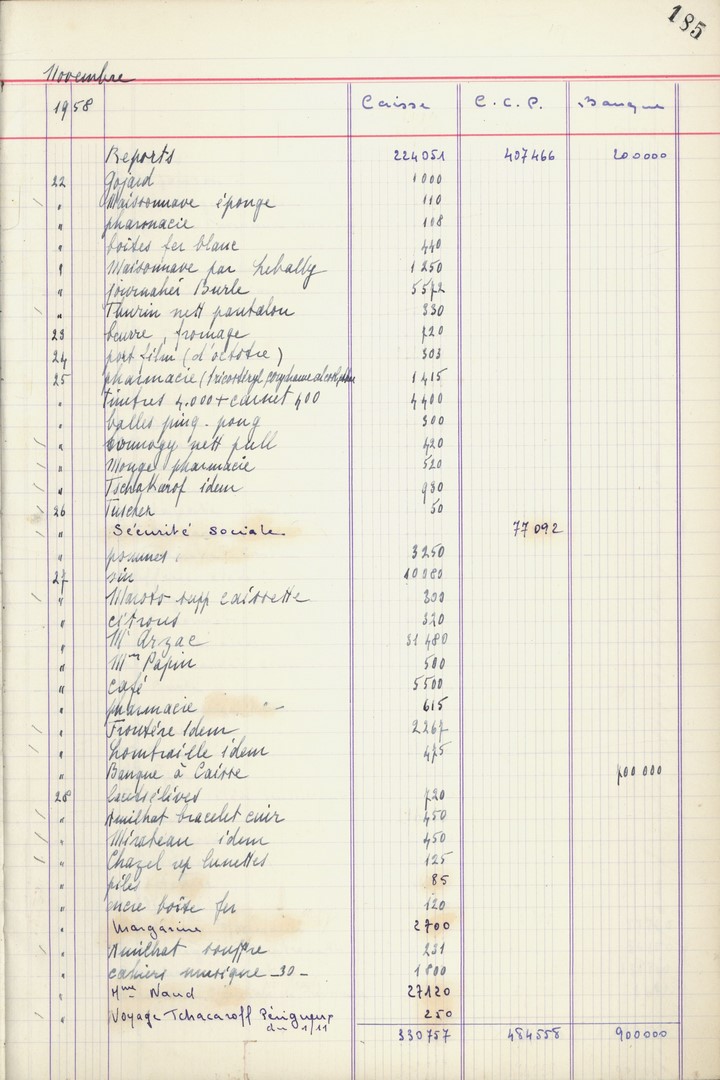 185
Novembre
1958 Caisse C.C.P. Banque
Reports 224051 407466 200000
22 Gojard 1000
" Maisonnave éponge 110
" pharmacie 118
" boîtes fer blanc 440
" Maisonnave par Lebally 1250
" Burle 5572
" Thurin nett pantalon 330
23 beurre, fromage 720
24 port film (d'octobre) 303
25 pharmacie ( 1415
" timbres 4.000 + carnet 400 4400
" balles ping-pong 300
" nett pull 420
" Mouge pharmacie 520
" Tschakarof idem 980
26 Tuscher 50
" Sécurité sociale 77092
" pommes 3250
27 vin 10080
" supp caissette 300
" citrons 320
" Mr Arzac 31480
" Mme Papin 500
" café 5500
" pharmacie 615
" Frontére idem 2267
" Lombraille idem 475
" Banque à Caisse 700 000
28 720
" Amilhat bracelet cuir 450
" Mirabeau idem 450
" Chazel rep lunettes 125
" piles 85
" encre boîte fer 120
" Margarine 2700
" Amilhat 231
" cahiers musique -30- 1800
" Mme Naud 27120
" Voyage Tchacaroff Périgueux 250
du 1/11
330757 484558 900000